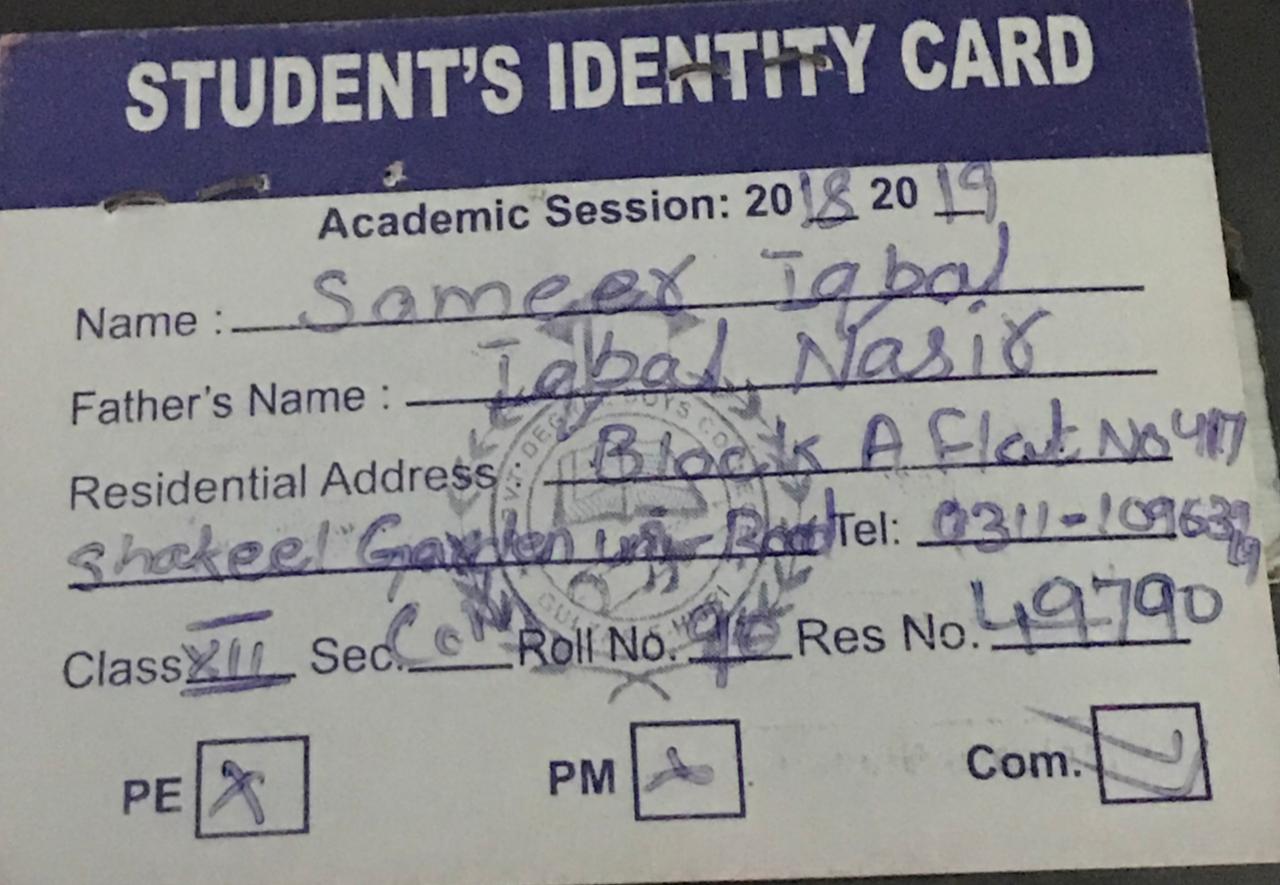 STUDENT'S IDENTITY CARD
Academic Session: 2018 2019
Name : Sameer Iqbal
Father's Name : Iqbal Nasir
Residential Address : Block A Flat No 417
Shakeel Garden Road Tel:
Class XII Sec. Roll No. Res No. 49790
PE PM Com.